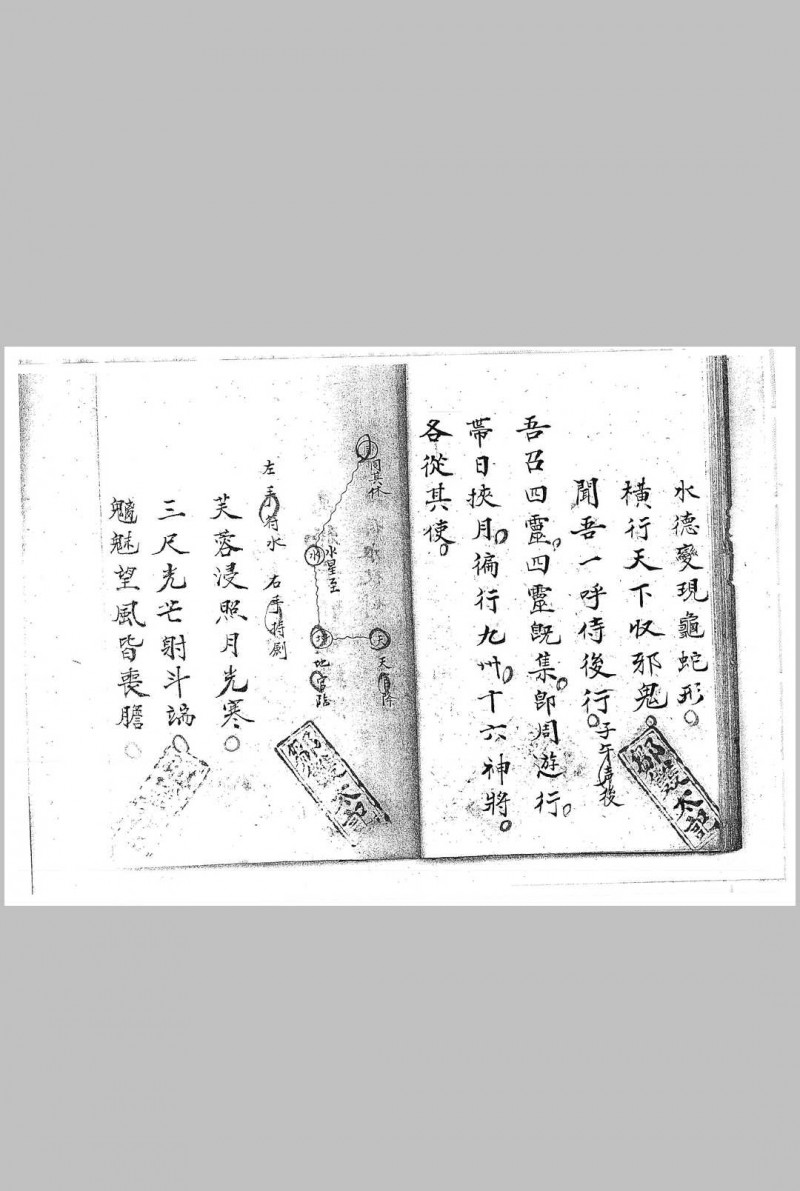 水德變現龜蛇形。
橫行天下収邪鬼。
聞吾一呼侍後行。子午
吾召四靈。四靈旣集。卽周遊行。
帶日挾月。徧行九州。十六神將。
各從其使。
水星至
水
天
左手符水 右手持劍
芙蓉浸照月光寒。
三尺光芒射斗端。
魑魅望風皆喪膽。